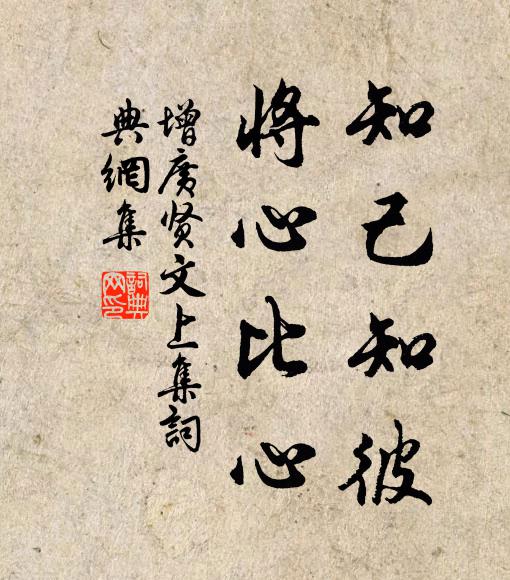 知己知彼
将心比心
增广贤文上集詞
典網集
詞典
网印